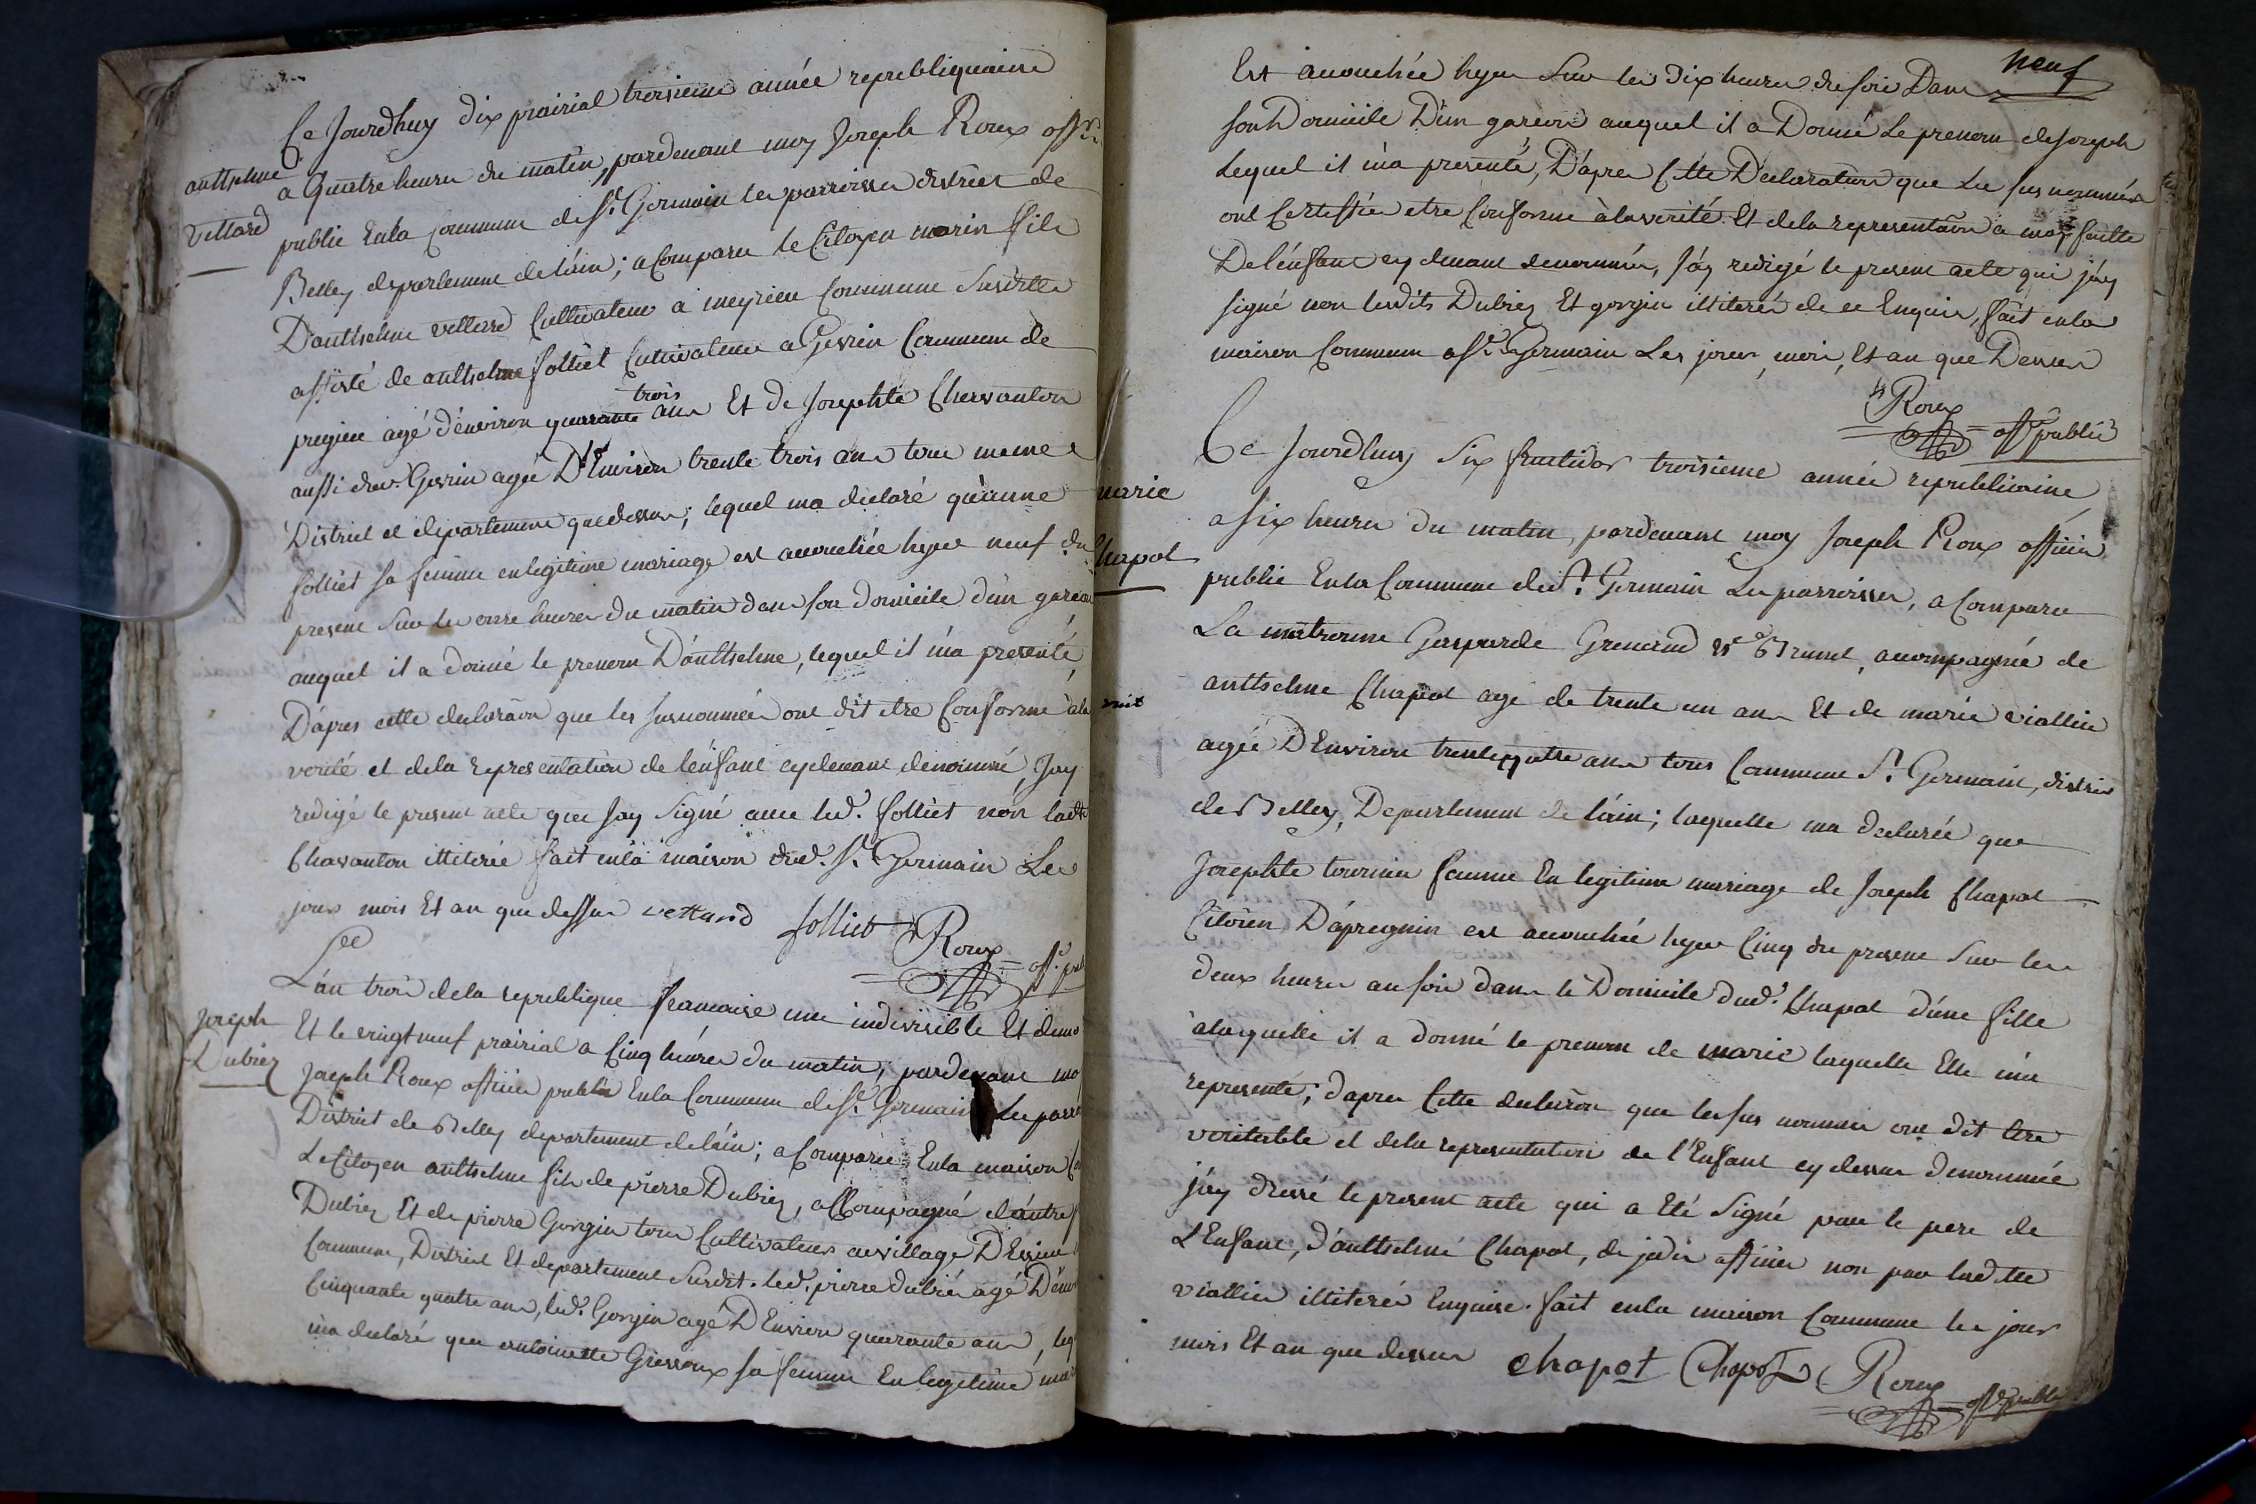 Ce Jourdhuy dix prairial troisieme année republiquaine
anthelme
vettard
a Quatre heures du matin, pardevant moy Joseph Roux offr.
public En la Commune de St. Germain les parroisses district de
Belley departement de l'ain; a Comparu le Citoyen marin fils
D'anthelme vettard Cultivateur a meyrieu Commune Susditte
assisté de anthelme folliet Cultivateur a Gevrin Commune de
pregieu agé d'environ quarante trois ans Et de Josephte Chavanton
aussi dud. Gevrin agée D'Environ trente trois ans tous meme
District et departement que dessus; lequel ma declaré qu'anne
folliet sa femme en legitime mariage est acouchée hyer neuf du
present Sur les onze heures du matin dans son domicile d'un garcon
auquel il a donné le prenom D'anthelme, lequel il m'a presenté,
D'apres cette declaraon que les susnommées ont dit etre Conforme a la
verité et de la representation de l'enfant cydevant denommé, Jay
redigé le present acte que Jay Signé avec led. folliet non ladte
Chavanton illiterée fait en la maison dud. St. Germain Les
jour mois Et an que dessus vettard folliet Roux offr. pub
L'an trois de la republique francaise une indivisible Et demo
Joseph
Dubiez
Et le vingt neuf prairial a Cinq heures du matin, pardevant mo
Joseph Roux officier public En la Commune de St. Germain Les parr
District de Belley departement de lain; a Comparu En la maison Co
Le Citoyen anthelme fils de pierre Dubiez, acCompagné d'autre
Dubiez Et de pierre Gorgin tous Cultivateurs au village D'Essieu
Commune, District Et departement Susdit. led. pierre dubié agé D'env
Cinquante quatre ans, led. Gorgin agé D'Environ quarante ans, leq
ma declaré que antoinette Gressoux sa femme En legitime mari
neuf
Est acouchée hyer Sur les dix heures du soir Dans
son Domicile D'un garcon auquel il a Donné Le prenom de Joseph
Lequel il m'a presenté, D'apres Cette Declaration que Les sus nommés
ont Certifiée etre Conforme à la verité Et de la representaon a moy faitte
De l'enfant cy devant denommés, J'ay redigé le present acte que j'ay
signé non lesdits Dubiez Et gorgin illiterés de ce Enquis, fait en la
maison Commune a St. Germain Les jour, mois, Et an que Dessus
Roux offr. public
Ce Jourdhuy Six fructidor troisieme année republicaine
marie
Chapot
a six heures du matin, pardevant moy Joseph Roux officier
public En la Commune de St. Germain Les parroisses, a Comparu
La matronne Gasparde Grenand ve Brunet, acompagnée de
anthelme Chapot agé de trente un ans Et de marie viallin
agée D'Environ trente quatre ans tous Commune St. Germain, district
de Belley, Departement de l'ain; laquelle ma declarée que
Josephte tournier femme En legitime mariage de Joseph Chapot
Citoien D'apregnin est acouchée hyer Cinq du present Sur les
deux heures au soir dans le Domicile dud. Chapot d'une fille
a laquelle il a donné le prenom de marie laquelle Elle m'a
representé; d'apres Cette declaraon que les sus nommés ont dit Etre
veritable et de la representation de l'Enfant cy dessus denommée
j'ay dressé le present acte qui a Eté Signé par le pere de
L'Enfant, d'anthelme Chapot, de jadis officier non par laditte
viallin illiterée Enquise. fait en la maison Commune les jour
mois Et an que dessus chapot Chapot Roux offr public